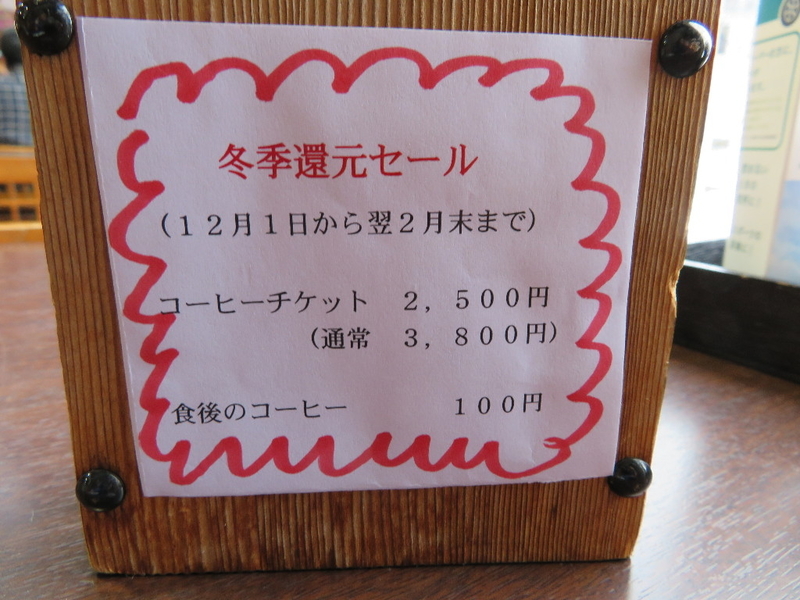 冬季還元セール
（１２月１日から翌２月末まで）
コーヒーチケット　２，５００円
（通常　３，８００円）
食後のコーヒー　１００円